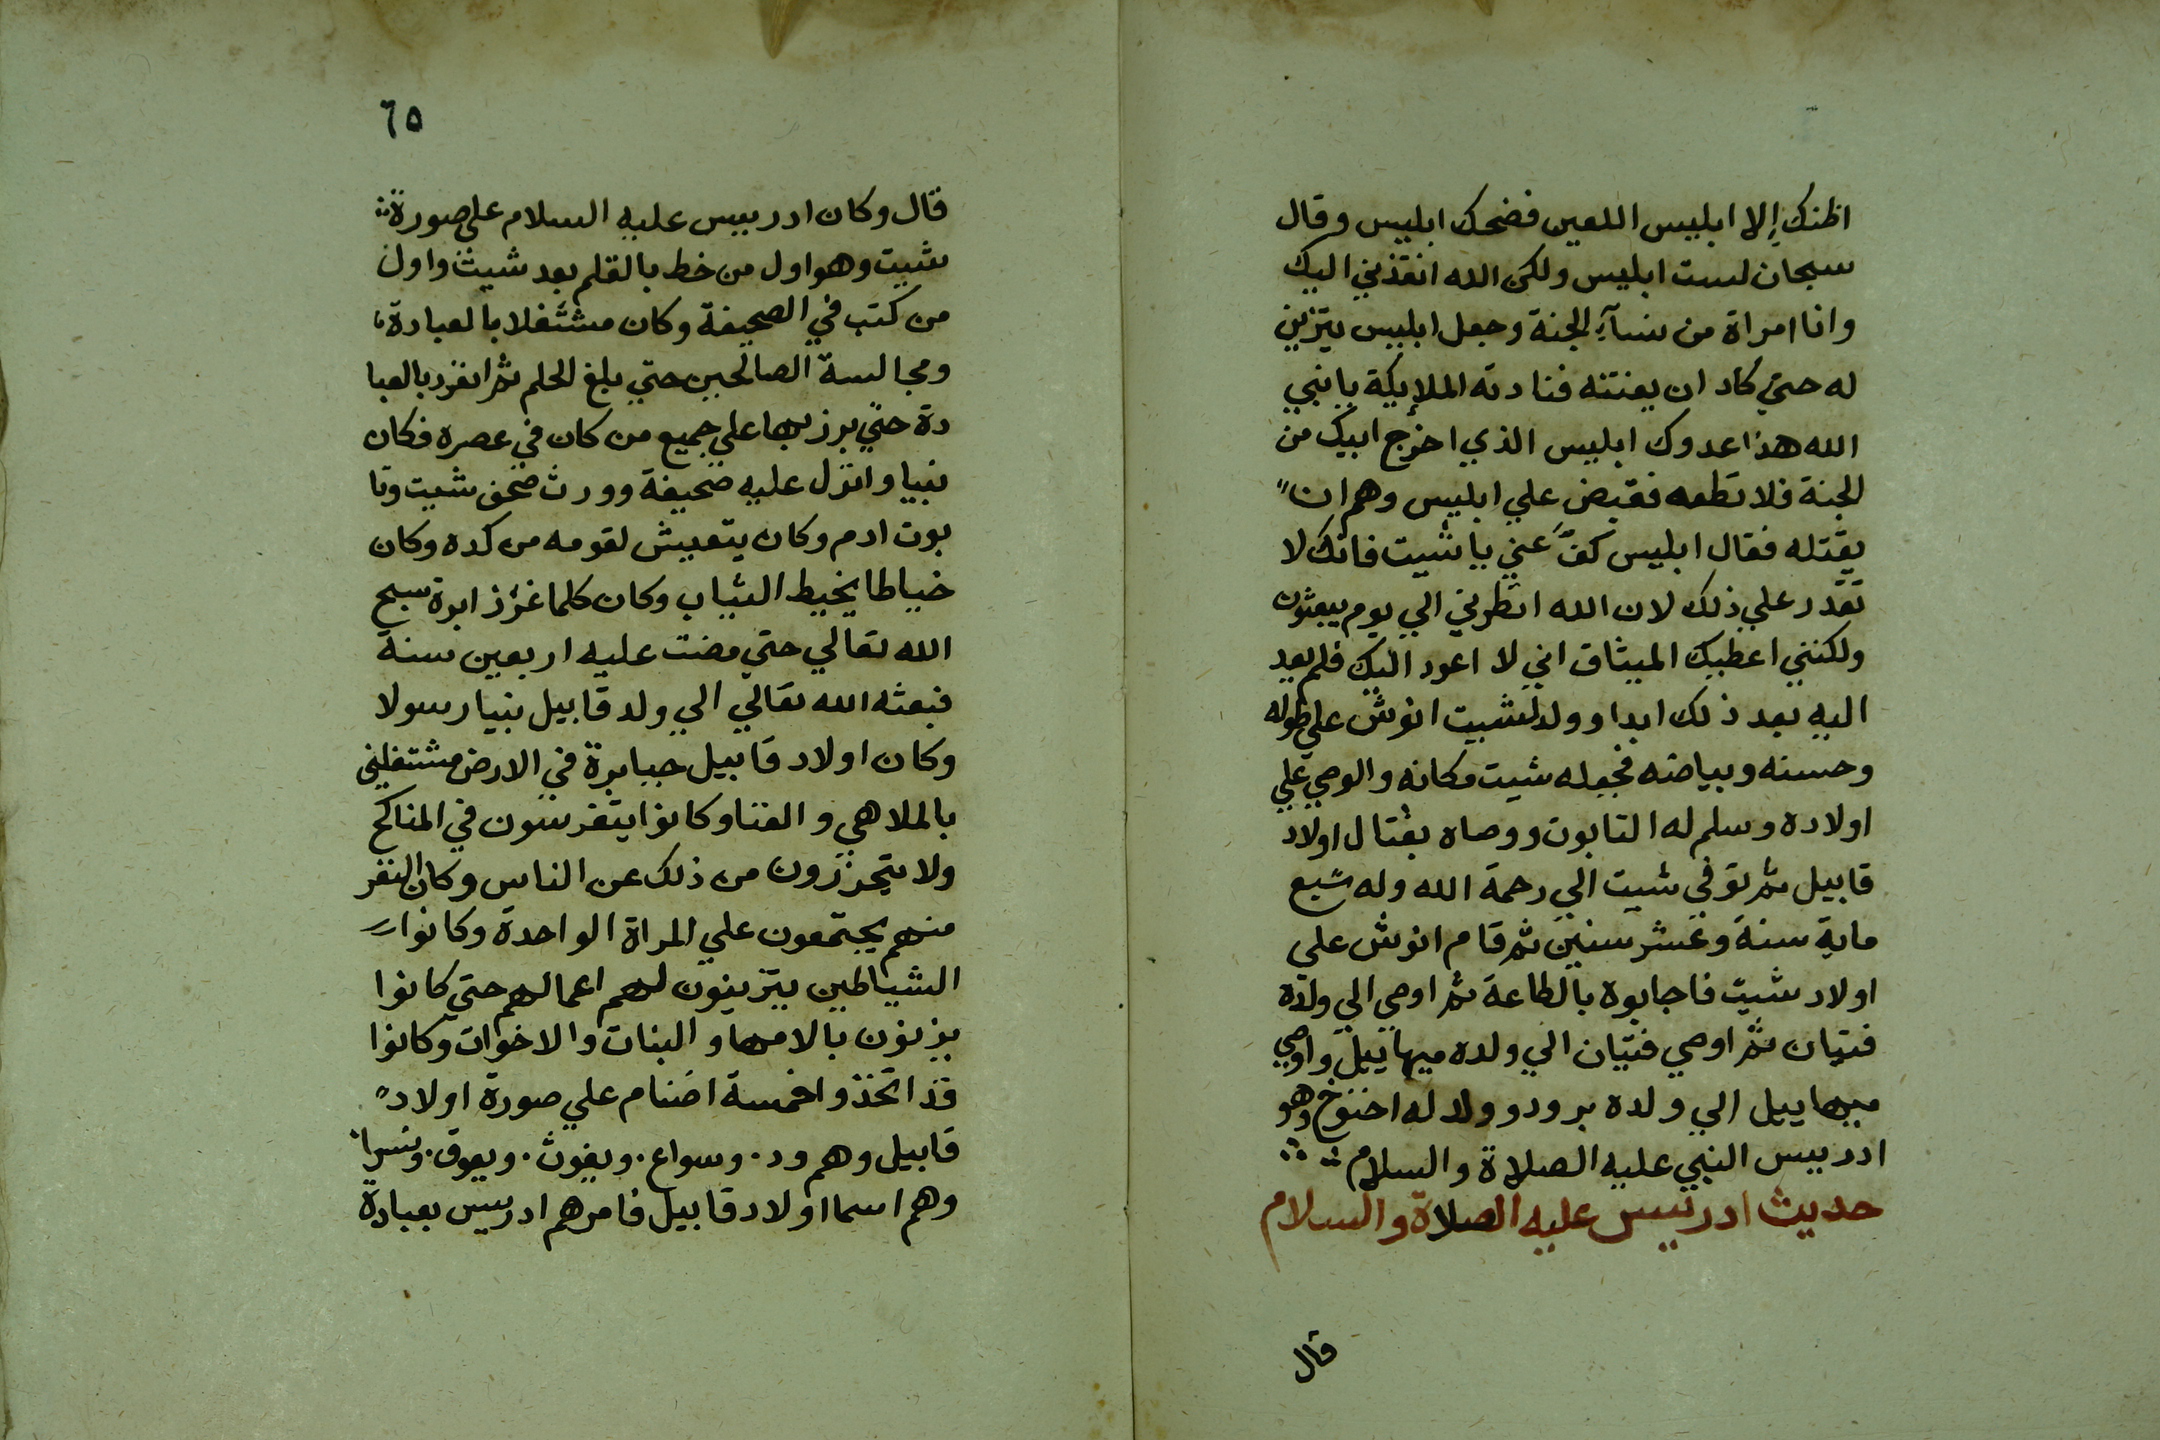 اظنك إلا ابليس اللعين فضحك ابليس وقال
سبحان لست ابليس ولكن الله انقذني اليك
وانا امراة من نسآء الجنة وجعل ابليس يتزين
له حتي كاد ان يفتنه فنادته الملايكة يا نبي
الله هذا عدوك ابليس الذي اخرج ابيك من
الجنة فلا تطعه فقبض علي ابليس وهم ان
يقتله فقال ابليس كفّ عني يا شيت فانك لا
تقدر علي ذلك لان الله انظرني الي يوم يبعثون
ولكنني اعطيك الميثاق اني لا اعود اليك فلم يعد
اليه بعد ذلك ابدا وولد لشيت انوش علي طوله
وحسنه وبياضه فجعله شيت مكانه والوصي علي
اولاده وسلم له التابوت ووصاه بقتال اولاد
قابيل ثم توفي شيت الي رحمة الله وله سبع
ماية سنة وعشر سنين ثم قام انوش علي
اولاد شيت فاجابوه بالطاعة ثم اوصي الي ولده
فتيان ثم اوصي فتيان الي ولده ميهاييل واوصي
ميهاييل الي ولده برود وولد له اخنوخ وهو
ادريس النبي عليه الصلاة والسلام
حديث ادريس عليه الصلاة والسلام
قال
٦٥
قال وكان ادريس عليه السلام علي صورة
شيت وهو اول من خط بالقلم بعد شيث واول
من كتب في الصحيفة وكان مشتغلا بالعبادة
ومجالسة الصالحين حتي بلغ الحلم ثم انفرد بالعبا
دة حتي برز بها علي جميع من كان في عصره فكان
نبيا وانزل عليه صحيفة وورث صحف شيت وتا
بوت ادم وكان يتعيش لقومه من كده وكان
خياطا يخيط الثياب وكان كلما غرز ابرة سبح
الله تعالي حتي مضت عليه اربعين سنة
فبعثه الله تعالي الي ولد قابيل نبيا رسولا
وكان اولاد قابيل جبابرة في الارض مشتغلين
بالملاهي والغنا وكانوا يتفرسون في المناكح
ولا يتحرزون من ذلك عن الناس وكان النفر
منهم يجتمعون علي المراة الواحدة وكانوا
الشياطين يتزينون لهم اعمالهم حتي كانوا
يزنون بالامها والبنات والاخوات وكانوا
قد اتخذوا خمسة اصنام علي صورة اولاد
قابيل وهم ود. وسواع. ويغوث. ويعوق. ونسرا
وهم اسما اولاد قابيل فامرهم ادريس بعبادة